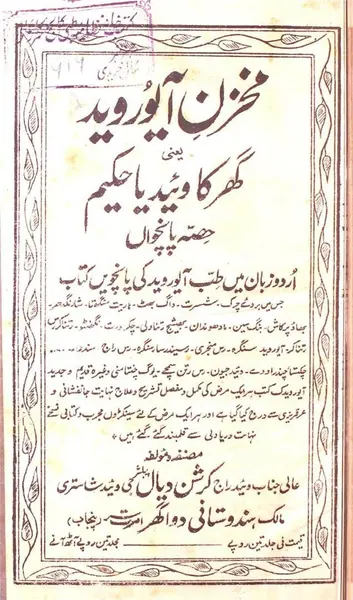 مخزنِ آیوروید
یعنی
گھر کا وئید یا حکیم
حصہ پانچواں
اُردو زبان میں طبِّ آیوروید کی پانچویں کتاب
جس میں بروئے چرک، سشرت، واگ بھٹ، ہاریت سنگھتا، شارنگدھر،
بھاؤ پرکاش، بنگ سین، مادھوندان، بھیشج رتناولی، چکردت، نگھنٹو،
آیوروید سنگرہ، رس منجری، رسیندر سار سنگرہ، رس راج سندر،
چکتسا چندر اودے، وئید جیون، رس رتن سمچے، یوگ چنتامنی وغیرہ قدیم و جدید
آیورویدک کتب ہر ایک مرض کی مکمل و مفصل تشریح و علاج نہایت جانفشانی و
عرقریزی سے درج کیا گیا ہے اور ہر ایک مرض کے لئے سینکڑوں مجرب و کتابی نسخے
نہایت دریا دلی سے قلمبند کئے گئے ہیں
مصنفہ و مؤلفہ
عالی جناب وئید راج کرشن دیال جی وئید شاستری
مالک ہندوستانی دواگھر امرتسر (پنجاب)
قیمت فی جلد تین روپے
مجلد تین روپے آٹھ آنے